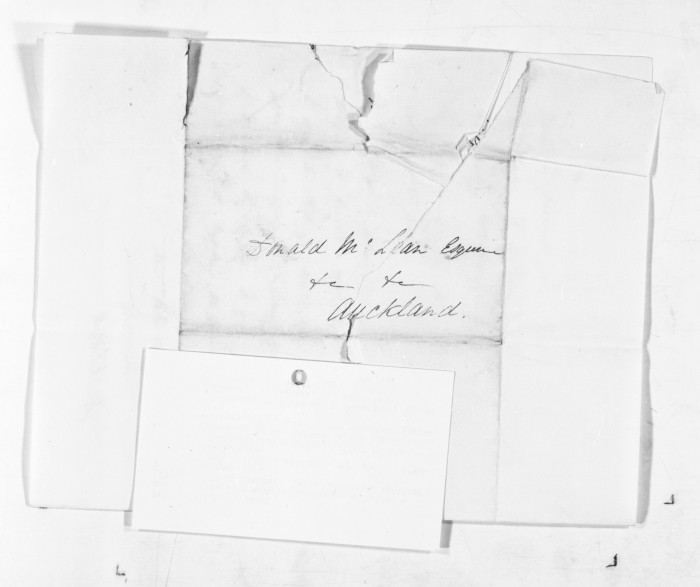 Donald McLean Esquire
&c &c
Auckland.